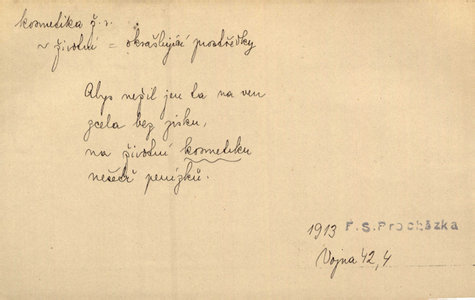 kosmetika ž. r.
~ životní = okrašlující prostředky
Abys nežil jen ta na ven
zcela bez zisku,
na životní kosmetiku
nešetř penízků.
1913 F. S. Procházka
Vojna 42, 4